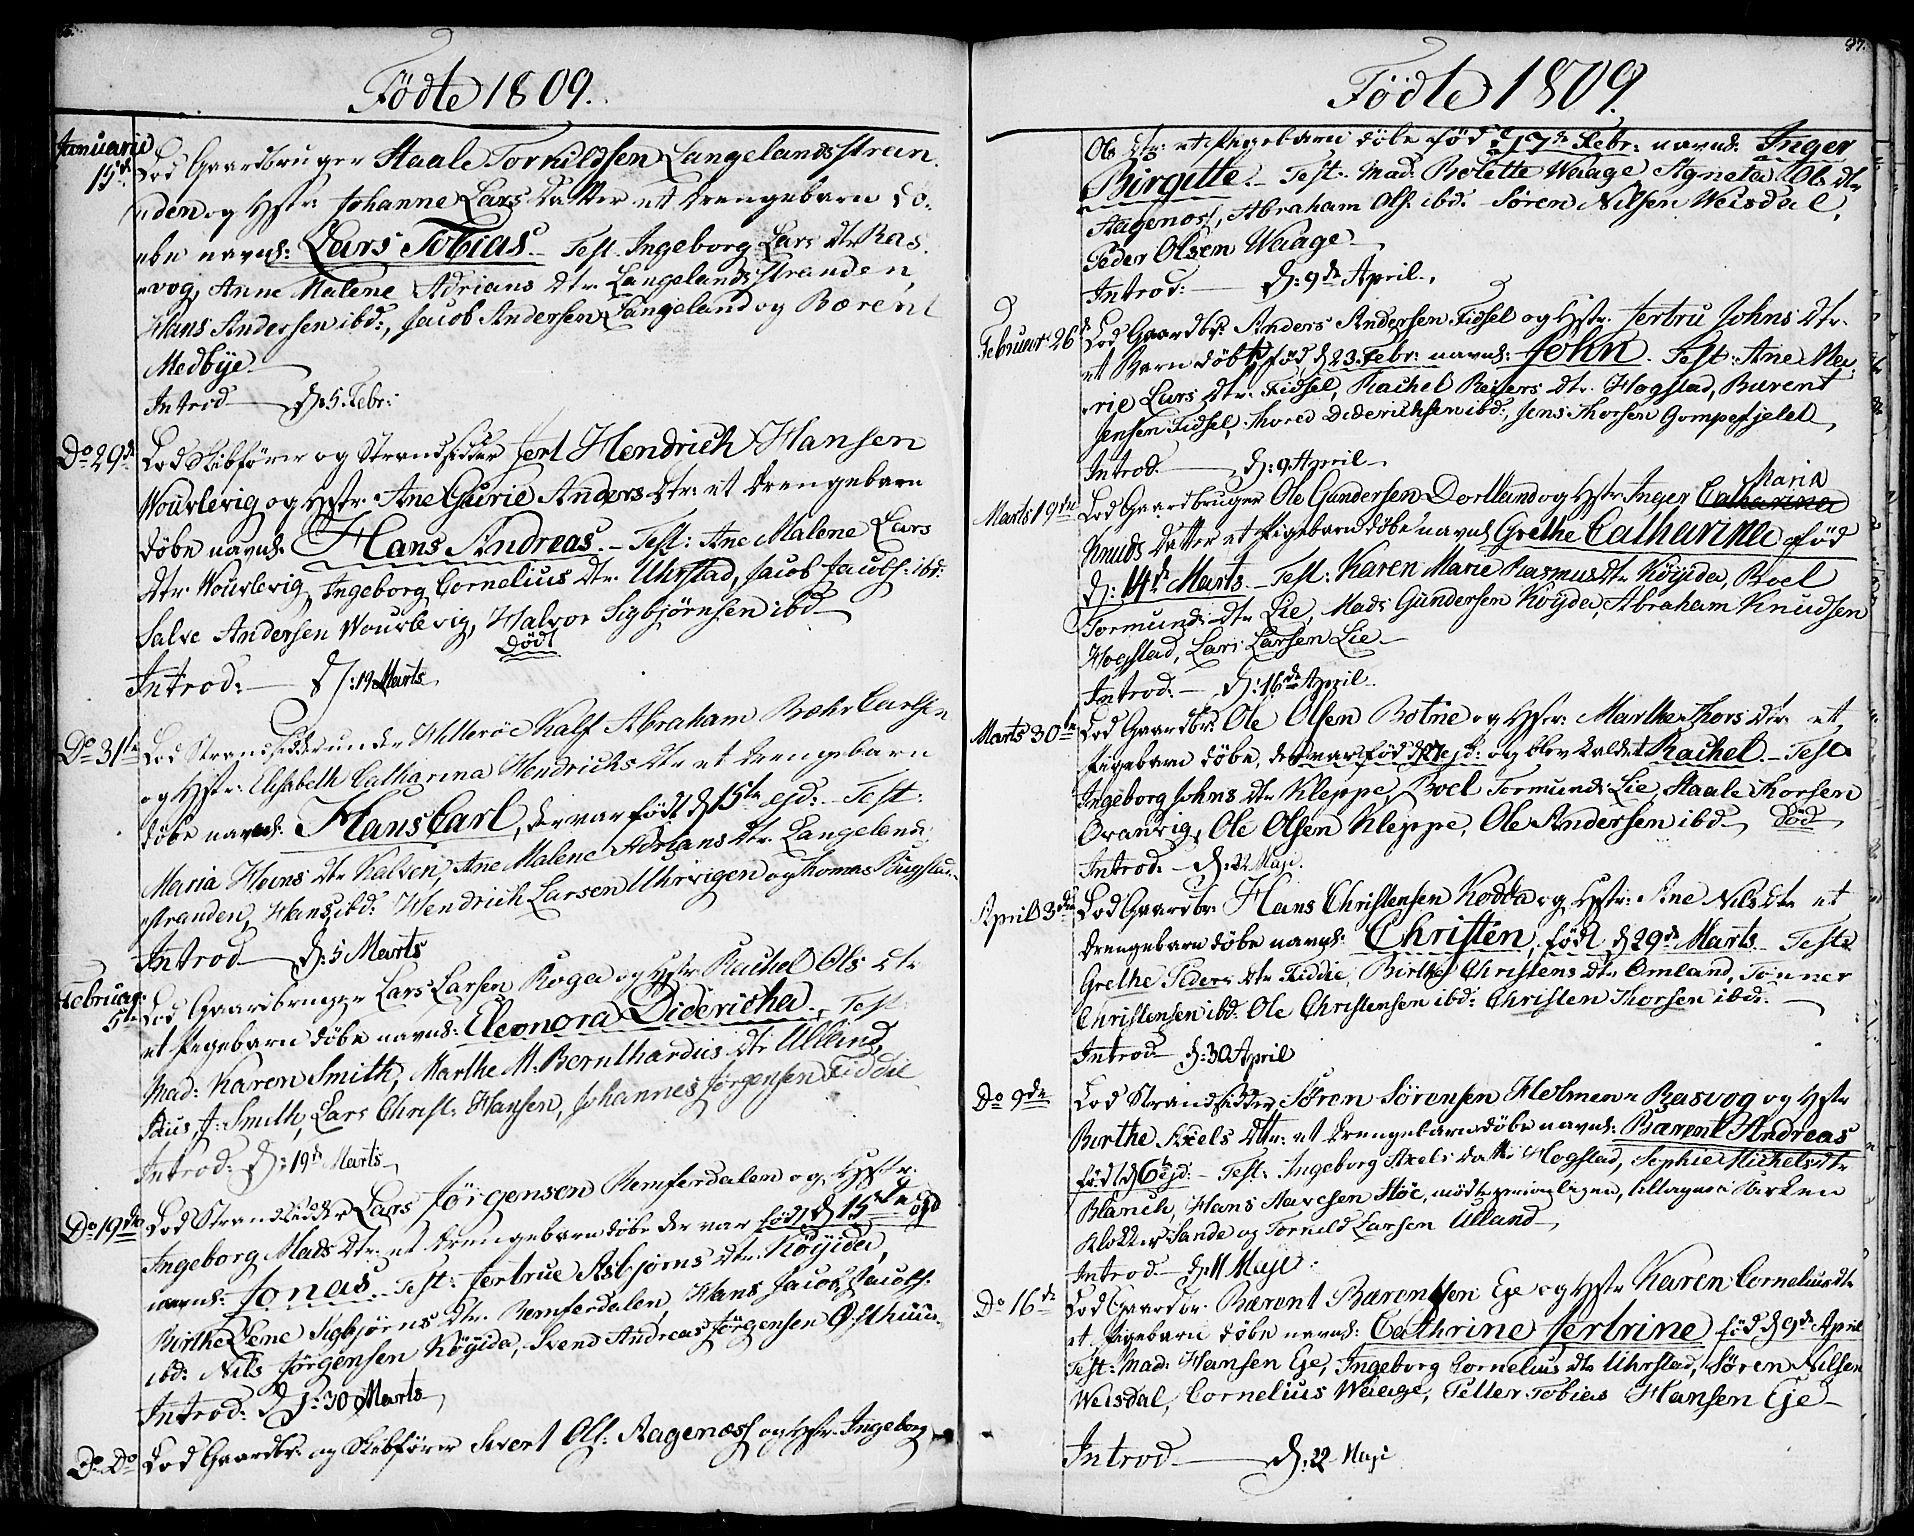 Födte 1809.
Januarii
15de Lod Gaardbruger Staale Torkildsen Langelandsstran
den og Hstr: Johanne Lars Datter et Drengebarn dö-
be navnl: Lars Tobias. Test. Ingeborg Lars Dtr Ras
vog, Anne Malene Adrians Dtr. Langelandsstranden,
Hans Andersen ibd:, Jacob Andersen Langeland og Bærent
Medbye.
Introd d: 5 Febr:
Do 29de Lod Skibförer og Strandsidder Jert Hendrich Hansen
Wourlevig og Hstr. Ane Gurie Anders Dtr: et Drengebarn
döbe navnl. Hans Andreas. Test: Ane Malene Lars
Dtr Wourlevig, Ingeborg Cornelius Dtr. Uhrstad, Jacob Jacobs: ibd:
Salve Andersen Wourlevig, Halvor Sigbjörnsen ibd
Död
Introd: d: 19 Marts
Do 31te Lod Strandsidder under Hitteröe Kalf Abraham Boehr Carlsen
og Hstr: Elisabeth Catharina Hendrichs Dtr et Drengebarn
döbe navnl. Hans Carl, der var födt d 15te ejd: Test:
Maria Heins Dtr Kalven, Ane Malene Adrians Dtr. Langelands
stranden, Hans ibd: Hendrich Larsen Uhrvigen og Thomas Rugstad
Introd d: 5 Marts
Februar:
5te Lod Gaardbruger Lars Larsen Roga og Hstr Rachel Ols Dtr
et Pigebarn döbe navnl: Eleonora Didericha. Test
Mad: Karen Smith, Marthe M. Bernthardus Dtr Ulland,
J: Smith, Lars Christ: Hansen, Johannes Jörgensen Fiddie
Introd: d: 19de Marts
Do 19de Lod Strandsidder Lars Jörgensen Remferdalen og Hstr.
Ingeborg Mads Dtr: et Drengebarn döbe der var födt d 15te ejd
navnl: Jonas. Test: Jertrue Asbjörns Dtr. Köyida,
Birthe Lene Sigbjörns Dtr. Remferdalen, Hans Jacob Jacobs:
ibd: Nils Jörgensen Köyida, Svend Andreas Jörgensen Östhuus
Introd: d: 30 Marts
Do Do Lod Gaardbr: og Skibförer Sivert Ols: Aagenæss og Hstr. Ingeborg
87.
Födte 1809
Ols Dtr: et Pigebarn döbe föd d 17de Febr: navnl: Inger
Birgitte. Test. Mad: Bolette Waage Agneta Ols Dtr
Aagenæss, Abraham Ols. ibd. Sören Nilsen Weisdal,
Peder Olsen Waage
Introd: d: 9de April.
Februar 26de Lod Gaardbr: Anders Andersen Fidsel og Hstr. Jertru Johns Dtr.
et Barn döbe föd d 23 Febr: navnl: John. Test: Ane Ma-
rie Lars Dtr. Fidsel, Rachel Reiers Dtr. Hogstad, Barent
Jensen Fidsel, Thored Dederichsen ibd:, Jens Thorsen Gompefjelet
Introd. d: 9 April
Marts 19de Lod Gaardbruger Ole Gundersen Dortland og Hstr Inger Catharina Maria
Knuds Datter et Pigebarn döbe navnl Grethe Catharina föd
d: 14de Marts. Test: Karen Marie Rasmus Dtr Köyida, Boel
Tormunds Dtr Lie, Mads Gundersen Köyda, Abraham Knudsen
Hogstad, Lars Larsen Lie
Introd: d: 16de April
Marts 30te Lod Gaardbr: Ole Olsen Botne og Hstr: Marthe Thors Dtr: et
Pigebarn döbe, der var föd d 27 ejd: og blev kaldet Rachel. Test
Ingeborg Johns Dtr Kleppe, Boel Tormunds Lie, Staale Thorsen
Oranvig, Ole Olsen Kleppe, Ole Andersen ibd Död
Introd. d: 22 Maji.
April 3die Lod Gaardbr: Hans Christensen Kodda og Hstr: Ane Nils Dtr et
Drengebarn döbe navnl: Christen, födt d 29de Marts. Test
Grethe Peders Dtr Fiddie, Birthe Christens Dtr Omland, Tönner
Christensen ibd: Ole Christensen ibd: Christen Thorsen ibd:
Introd d: 30 April
Do 9de Lod Strandsidder Sören Sörensen Holmen Rasvog og Hstr
Birthe Axels Dtr: et Drengebarn döbe navnl: Bærent Andreas
födt d 6te ejd: Test: Ingeborg Axels Datter Hogstad, Sophie Michels Dtr
Blanch, Hans Stöe,
Klokker Sande og Torkild Larsen Ulland
Introd d: 11 Maji
Do 16de Lod Gaardbr. Bærent Bærentsen Eje og Hstr Karen Cornelius Dtr
et Pigebarn döbe navnl: Cathrine Jertrine föd d 9de April
Test: Mad: Hansen Eje, Ingeborg Cornelius Dtr Uhrstad, Sören Nilsen
Weisdal, Cornelius Waage, Petter Tobias Hansen Eje
Introd d: 22 Maji